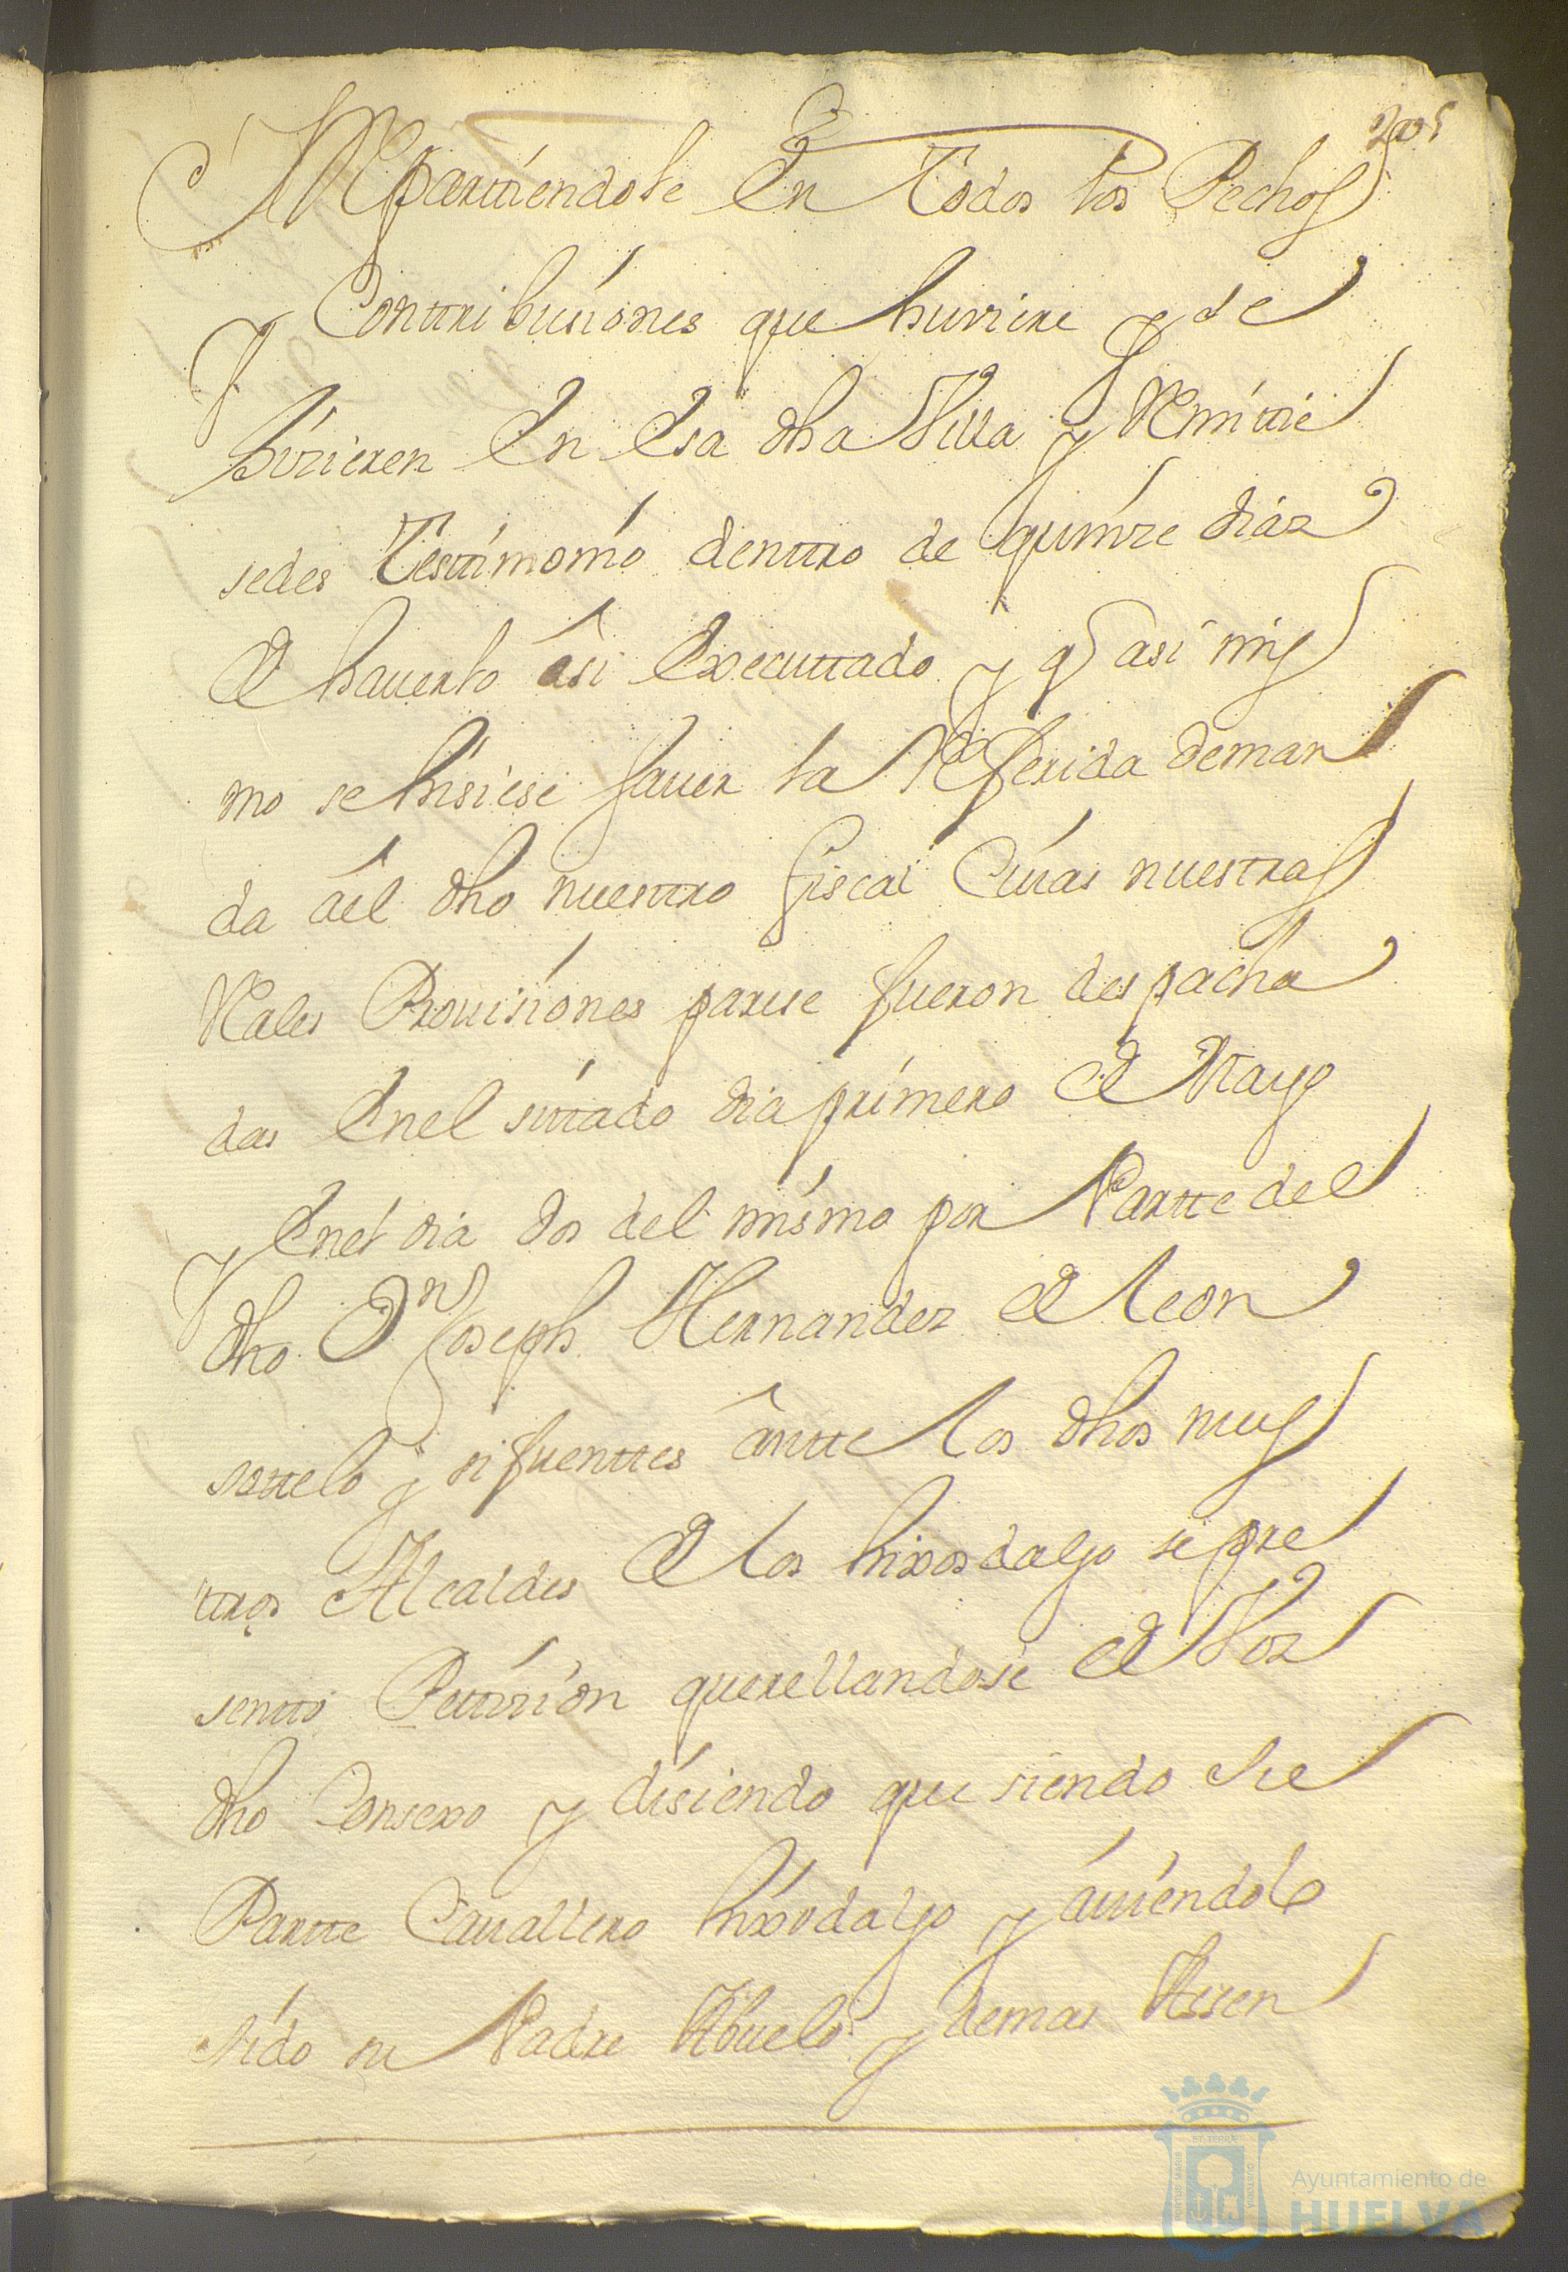 Repartiendole En todos los Pechos
y Conttribusiones que huviere y se
hizieren En Esa dha Villa y Remittie
sedes Testtimonio denttro de quinze dias
de hauerlo asi Executtado y q asi mis
mo se hisiese sauer la Referida deman
da âel dho nuesttro fiscal Cuias nuestras
Rales Prouisiones parese fueron despacha
das Enel sittado dia primero de Mayo
y Enel dia dos del mismo por Partte del
dho Dn Joseph Hernandez de leon
sottelo y sifuenttes ântte los dhos nues
ttros Alcaldes de los hixosdalgo se pre
sentto Pettision querellandose de Vos
dho Consexo y disiendo que siendo su
Partte Cauallero hixodalgo y auiendolo
sido su Padre Abuelo y demas Assen
Ayuntamiento de
HUELVA